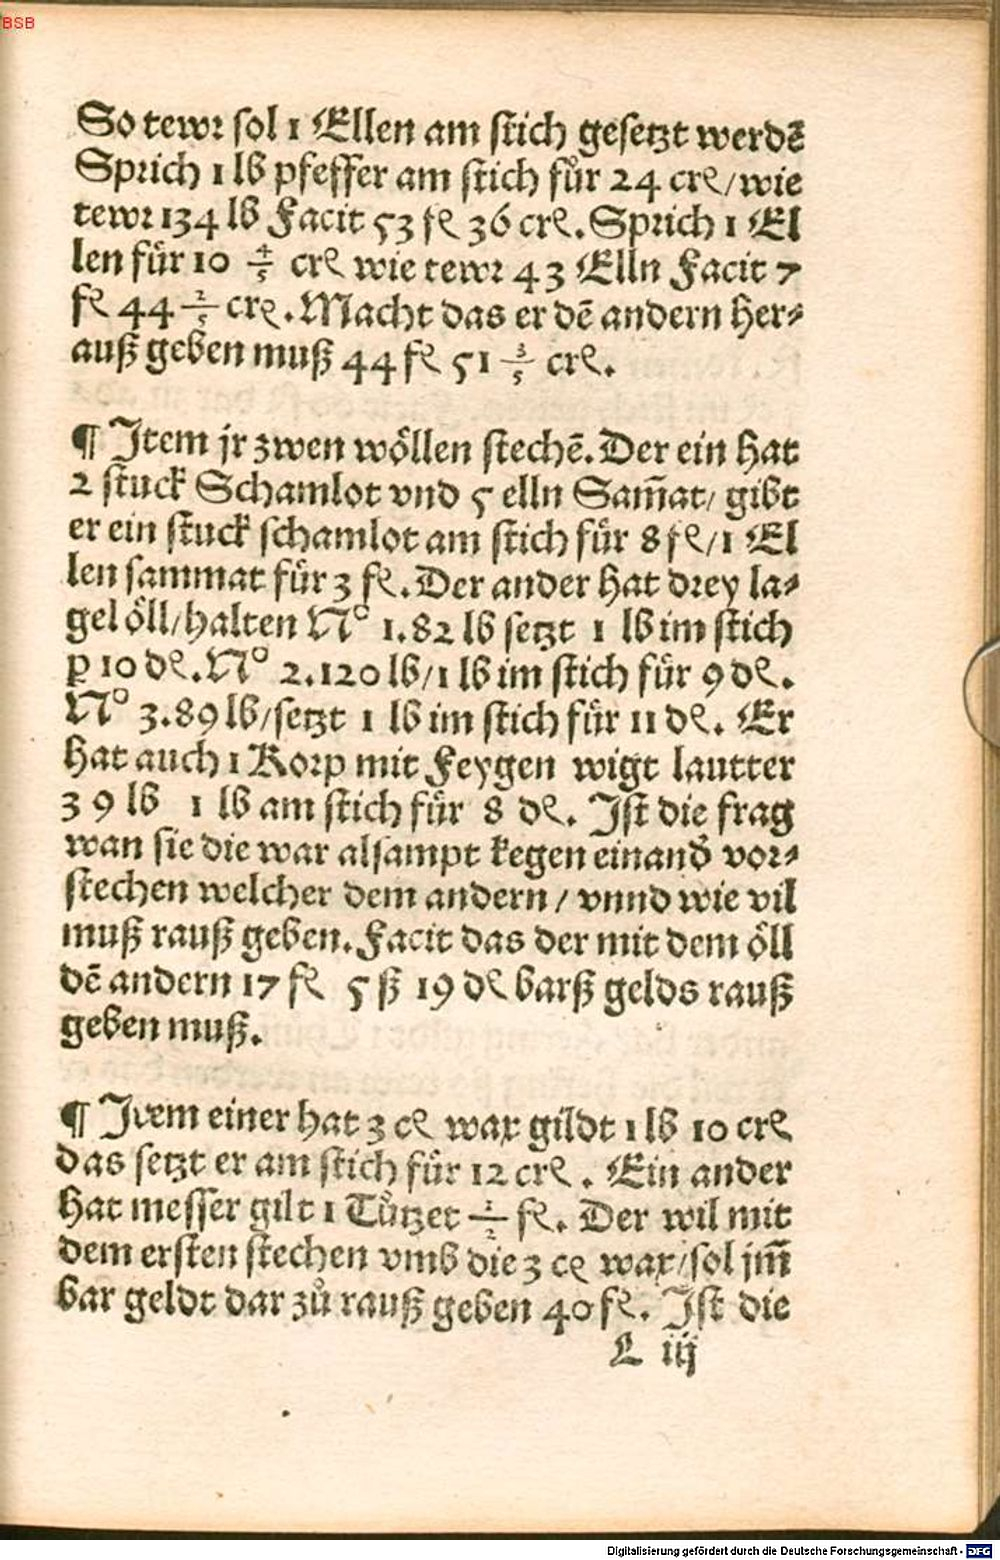 BSB
So tewr sol 1 Ellen am stich gesetzt werdē
Sprich 1 lb pfeffer am stich fůr 24 crꝭ/wie
tewr 134 lb Facit 53 fꝭ 36 crꝭ. Sprich 1 El
len für 10 4/5 crꝭ wie tewr 43 Elln Facit 7
fꝭ 44 2/5 crꝭ. Macht das er dē andern her⸗
auß geben muß 44 fꝭ 51 3/5 crꝭ.
¶ Item jr zwen wöllen stechē. Der ein hat
2 stuck Schamlot vnd 5 elln Sam̄at/ gibt
er ein stuck schamlot am stich für 8 fꝭ/1 El
len sammat für 3 fꝭ. Der ander hat drey la⸗
gel öll/halten Nº 1.82 lb setzt 1 lb im stich
p 10 dꝭ. Nº 2.120 lb/1 lb im stich für 9 dꝭ.
Nº 3.89 lb/setzt 1 lb im stich für 11 dꝭ. Er
hat auch 1 Korp mit Feygen wigt lautter
39 lb 1 lb am stich für 8 dꝭ. Ist die frag
wan sie die war alsampt kegen einand̛ vor⸗
stechen welcher dem andern / vnnd wie vil
muß rauß geben. Facit das der mit dem öll
dē andern 17 fꝭ 5 ß 19 dꝭ barß gelds rauß
geben muß.
¶ Item einer hat 3 cꝭ wax gildt 1 lb 10 crꝭ
das setzt er am stich für 12 crꝭ. Ein ander
hat messer gilt 1 Tützet 1/2 fꝭ. Der wil mit
dem ersten stechen vmb die 3 cꝭ wax/sol jm̄
bar geldt dar zů rauß geben 40 fꝭ. Ist die
L iij
Digitalisierung gefördert durch die Deutsche Forschungsgemeinschaft - DFG